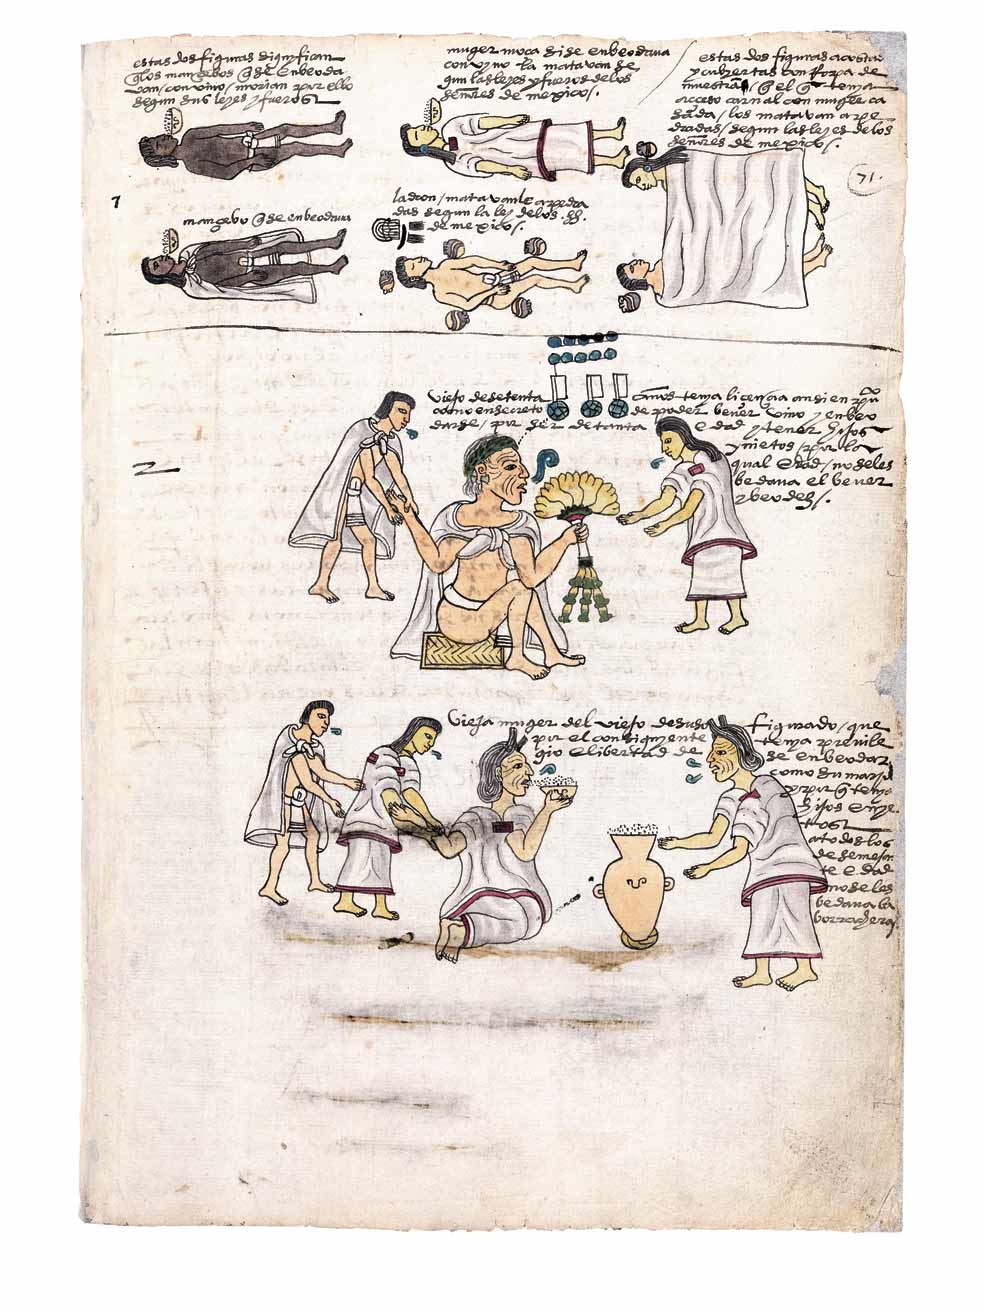 estas dos figuras significan
q̃ los mançebos q̃ se enbeoda
van / con vino / morian por ello
segun sus leyes y fueros
muger moça si se enbeodava
con vyno la matavan se
gun las leyes y fueros de los
señores de mexico /.
estas dos figuras acosta
y cubiertas con ropa de
muestran / q̃ el q̃ tenya
acceso carnal con muger ca
sada / los matavan a pe
dradas / segun las leyes de los
señores de mexico /.
71.
1
mançebo q̃ se enbeodava
ladron / matavanle a pedra
das segun la ley de los .SS.
de mexico /.
2
viejo de setenta
odno en secreto
darse / por ser de tanta
años tenya liçençia ansi en pu
de poder bever vino y enbeo
e dad y tener hijos
y nietos / por lo
qual edad / no se les
bedava el bever
y beodez /.
vieja muger del viejo desuso
por el consiguyente
gio e libertad de
figurado / que
tenya previle
se enbeodar
como su marido
y por q̃ tenya
hijos e nye
tos
a todos los
de semejan
te e dad
no se les
bedava la
borrachera /.